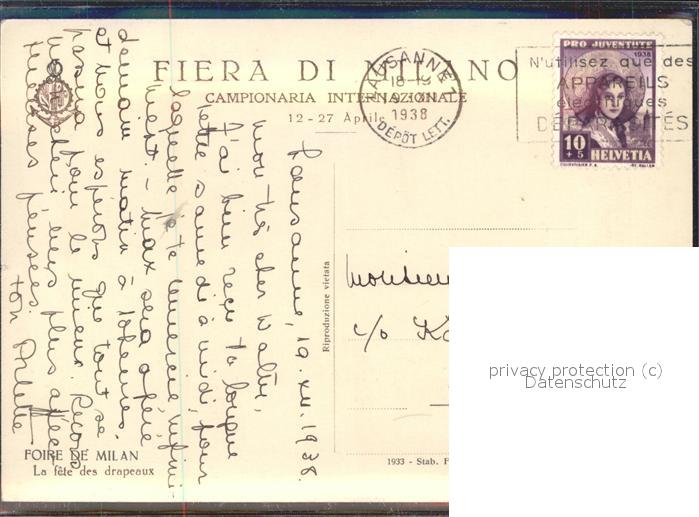 FIERA DI MILANO
CAMPIONARIA INTERNAZIONALE
12 - 27 Aprile
LAUSANNE 1
1938
DÉPÔT LETT.
N'utilisez que des
APPAREILS
électriques
DÉPARASITÉS
PRO JUVENTUTE
1938
10
+5
HELVETIA
Lausanne, 19. XII. 1938.
mon très cher Walter,
J'ai bien reçu ta longue
lettre samedi à midi, pour
laquelle je te remercie infini-
ment. - Max sera opéré
demain matin à 10 heures.
et nous espérons que tout se
passera pour le mieux. Reçois
mon chéri, mes plus affec-
tueuses pensées.
ton Arlette
Monsieur
c/o
Riproduzione vietata
FOIRE DE MILAN
La fête des drapeaux
1933 - Stab. F
privacy protection (c)
Datenschutz